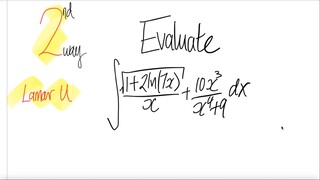 2nd way
Lamar U
Evaluate
∫ √(1+2ln(7x))/x + 10x³/(x⁴+9) dx